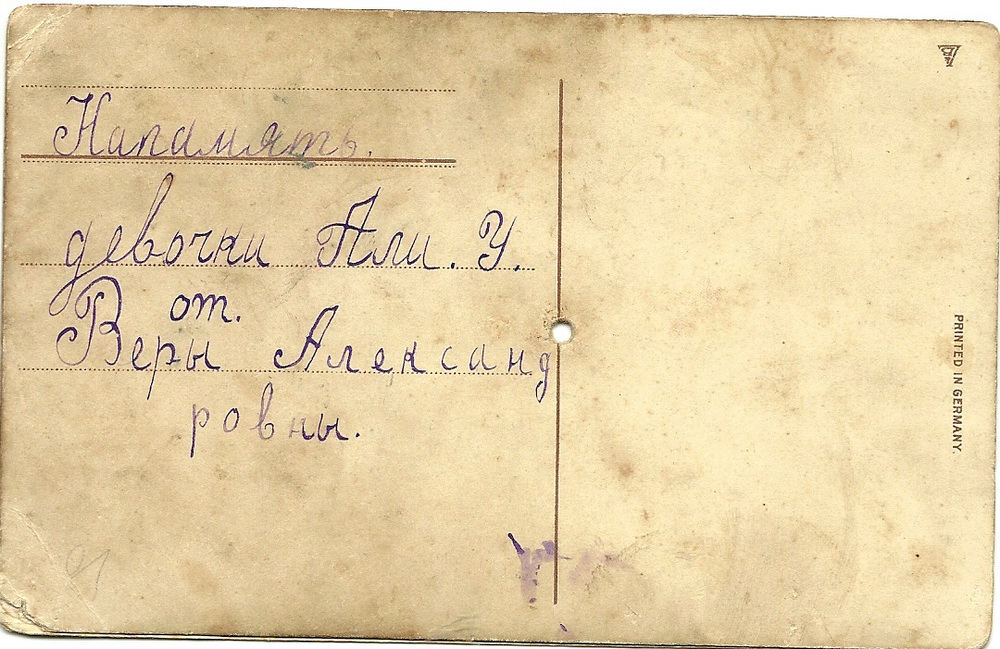 Напамять.
девочки Али. У.
от.
Веры Александ
ровны.
PRINTED IN GERMANY.